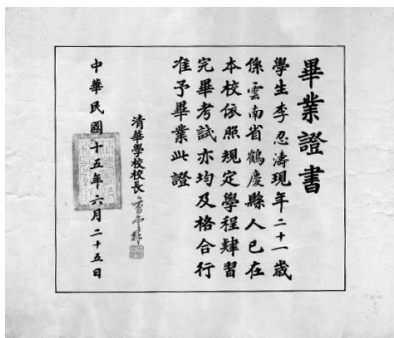 畢業證書
學生李忍濤現年二十一歲
係雲南省鶴慶縣人已在
本校依照規定學程肄習
完畢考試亦均及格合行
准予畢業此證
清華學校校長
中華民國十五年六月二十五日